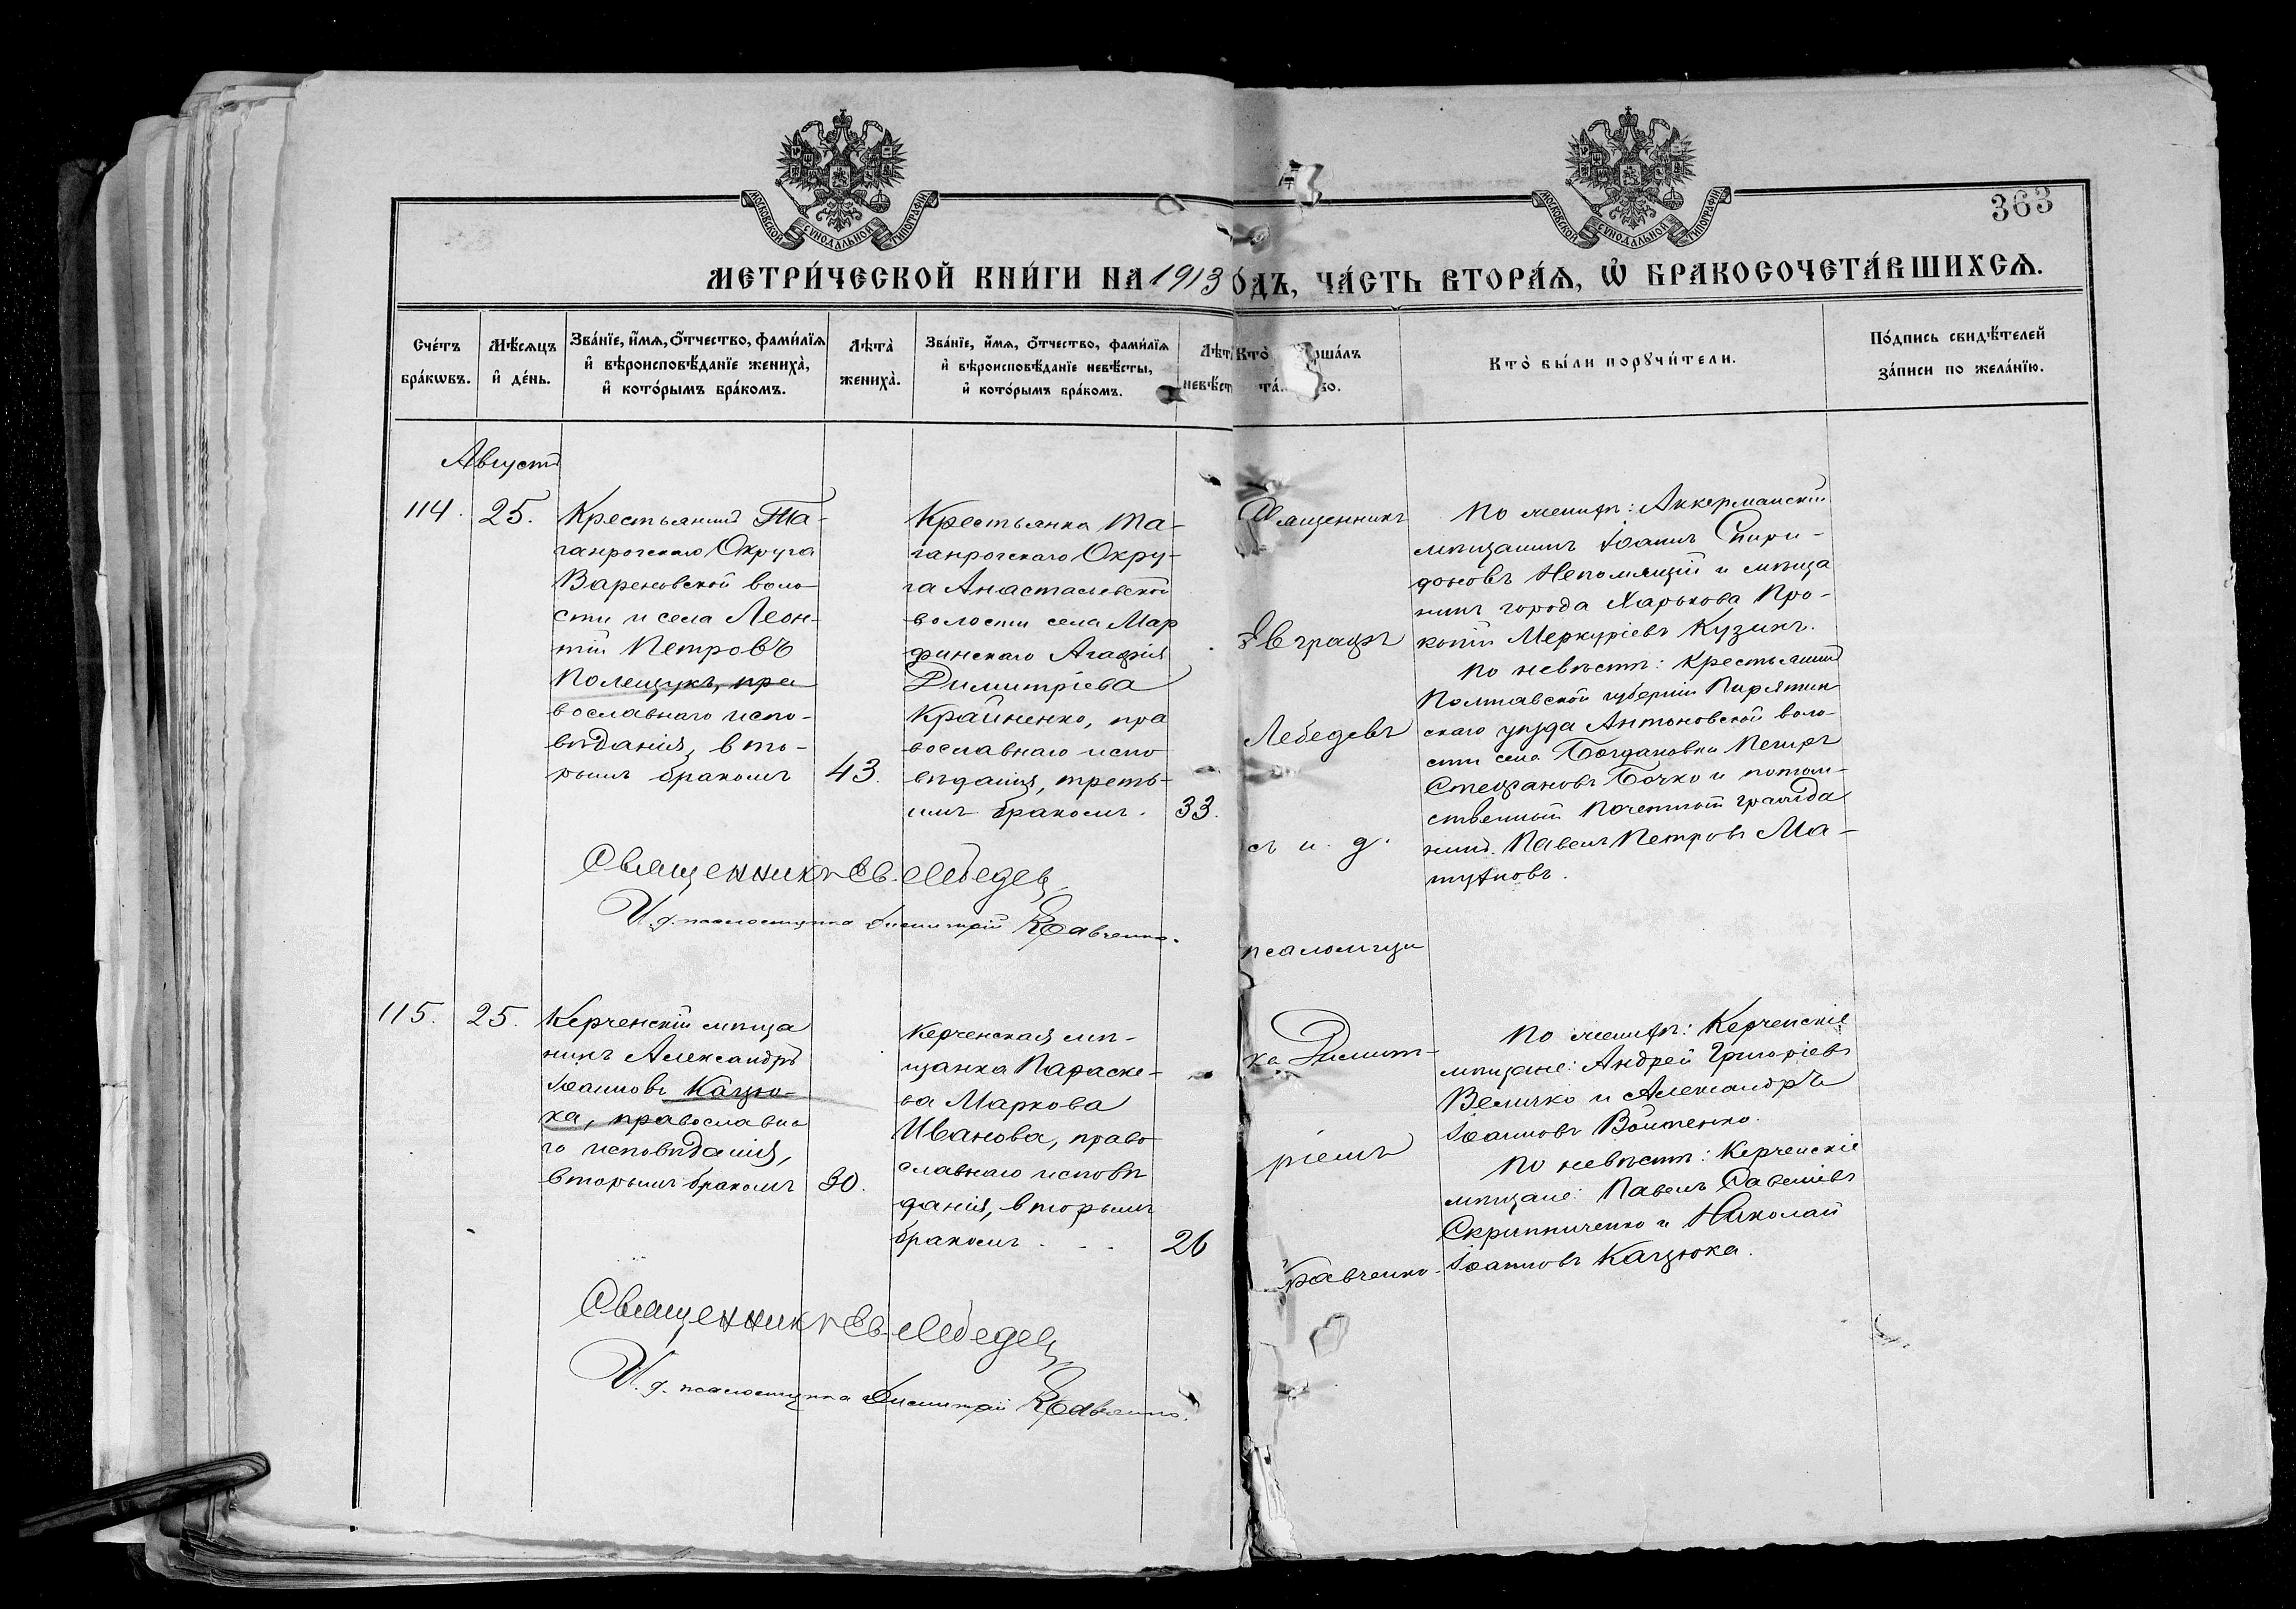 МОСКОВСКОЙ СУНОДАЛЬНОЙ ТИПОГРАФІИ
МОСКОВСКОЙ СУНОДАЛЬНОЙ ТИПОГРАФІИ
363
МЕТРИ́ЧЕСКОЙ КНИ́ГИ НА 1913 О́ДЪ, ЧА́СТЬ ВТОРА́Ѧ, Ѡ҆ БРАКОСОЧЕТА́ВШИХСѦ.
Сче́тъ бра́кѡвъ.
Мѣ́сѧцъ и҆ де́нь.
Зва́нїе, и҆́мѧ, ѻ҆́тчество, фами́лїѧ
и҆ вѣроисповѣ́данїе жениха̀,
и҆ кото́рымъ бра́комъ.
Лѣта̀ жениха̀.
Зва́нїе, и҆́мѧ, ѻ҆́тчество, фами́лїѧ
и҆ вѣроисповѣ́данїе невѣ́сты,
и҆ кото́рымъ бра́комъ.
Лѣт
невѣ́ст
Кто̀ ршалъ
та во.
Кто̀ бы́ли порꙋчи́тели.
По́дпись свидѣ́телей
за́писи по жела́нїю.
Августъ
114. 25.
Крестьянинъ Та-
ганрогскаго Округа
Вареновской воло-
сти и села Леон-
тій Петровъ
Полещукъ, пра
вославнаго испо-
вѣданія, вто-
рымъ бракомъ
43.
Крестьянка Та-
ганрогскаго Окру-
га Анастасьевской
волости села Мар
финскаго Агафія
Димитріева
Крайненко, пра
вославнаго испо
вѣданія, треть-
имъ бракомъ.
33.
Священникъ
Евграфъ
Лебедевъ
съ и. д.
псаломщи
По женихѣ: Аккерманскій
мѣщанинъ Іоаннъ Спири-
доновъ Непомящій и мѣща
нинъ города Харькова Про-
копій Меркуріевъ Кузикъ.
По невѣстѣ: Крестьянинъ
Полтавской губерніи Пирятин
скаго уѣзда Антоновской воло-
сти села Богдановки Петръ
Стефановъ Бочко и потом-
ственный почетный гражда
нинъ Павелъ Петровъ Ма-
Священникъ Ев. Лебедевъ
И. д. псаломщика Димитрій Кравченко.
115. 25.
Керченскій мѣща
нинъ Александръ
Іоанновъ Кацю-
ка, православна
го исповѣданія,
вторымъ бракомъ
30.
Керченская мѣ-
щанка Параске-
ва Маркова
Иванова, право
славнаго исповѣ
данія, вторымъ
бракомъ . . .
26
ка Димит-
ріемъ
Кравченко.
По женихѣ: Керченскіе
мѣщане: Андрей Григоріевъ
Величко и Александръ
Іоанновъ Войтенко.
По невѣстѣ: Керченскіе
мѣщане: Павелъ Савеліевъ
Скрипниченко и Николай
Іоанновъ Кацюка.
Священникъ Ев. Лебедевъ
И. д. псаломщика Димитрій Кравченко.